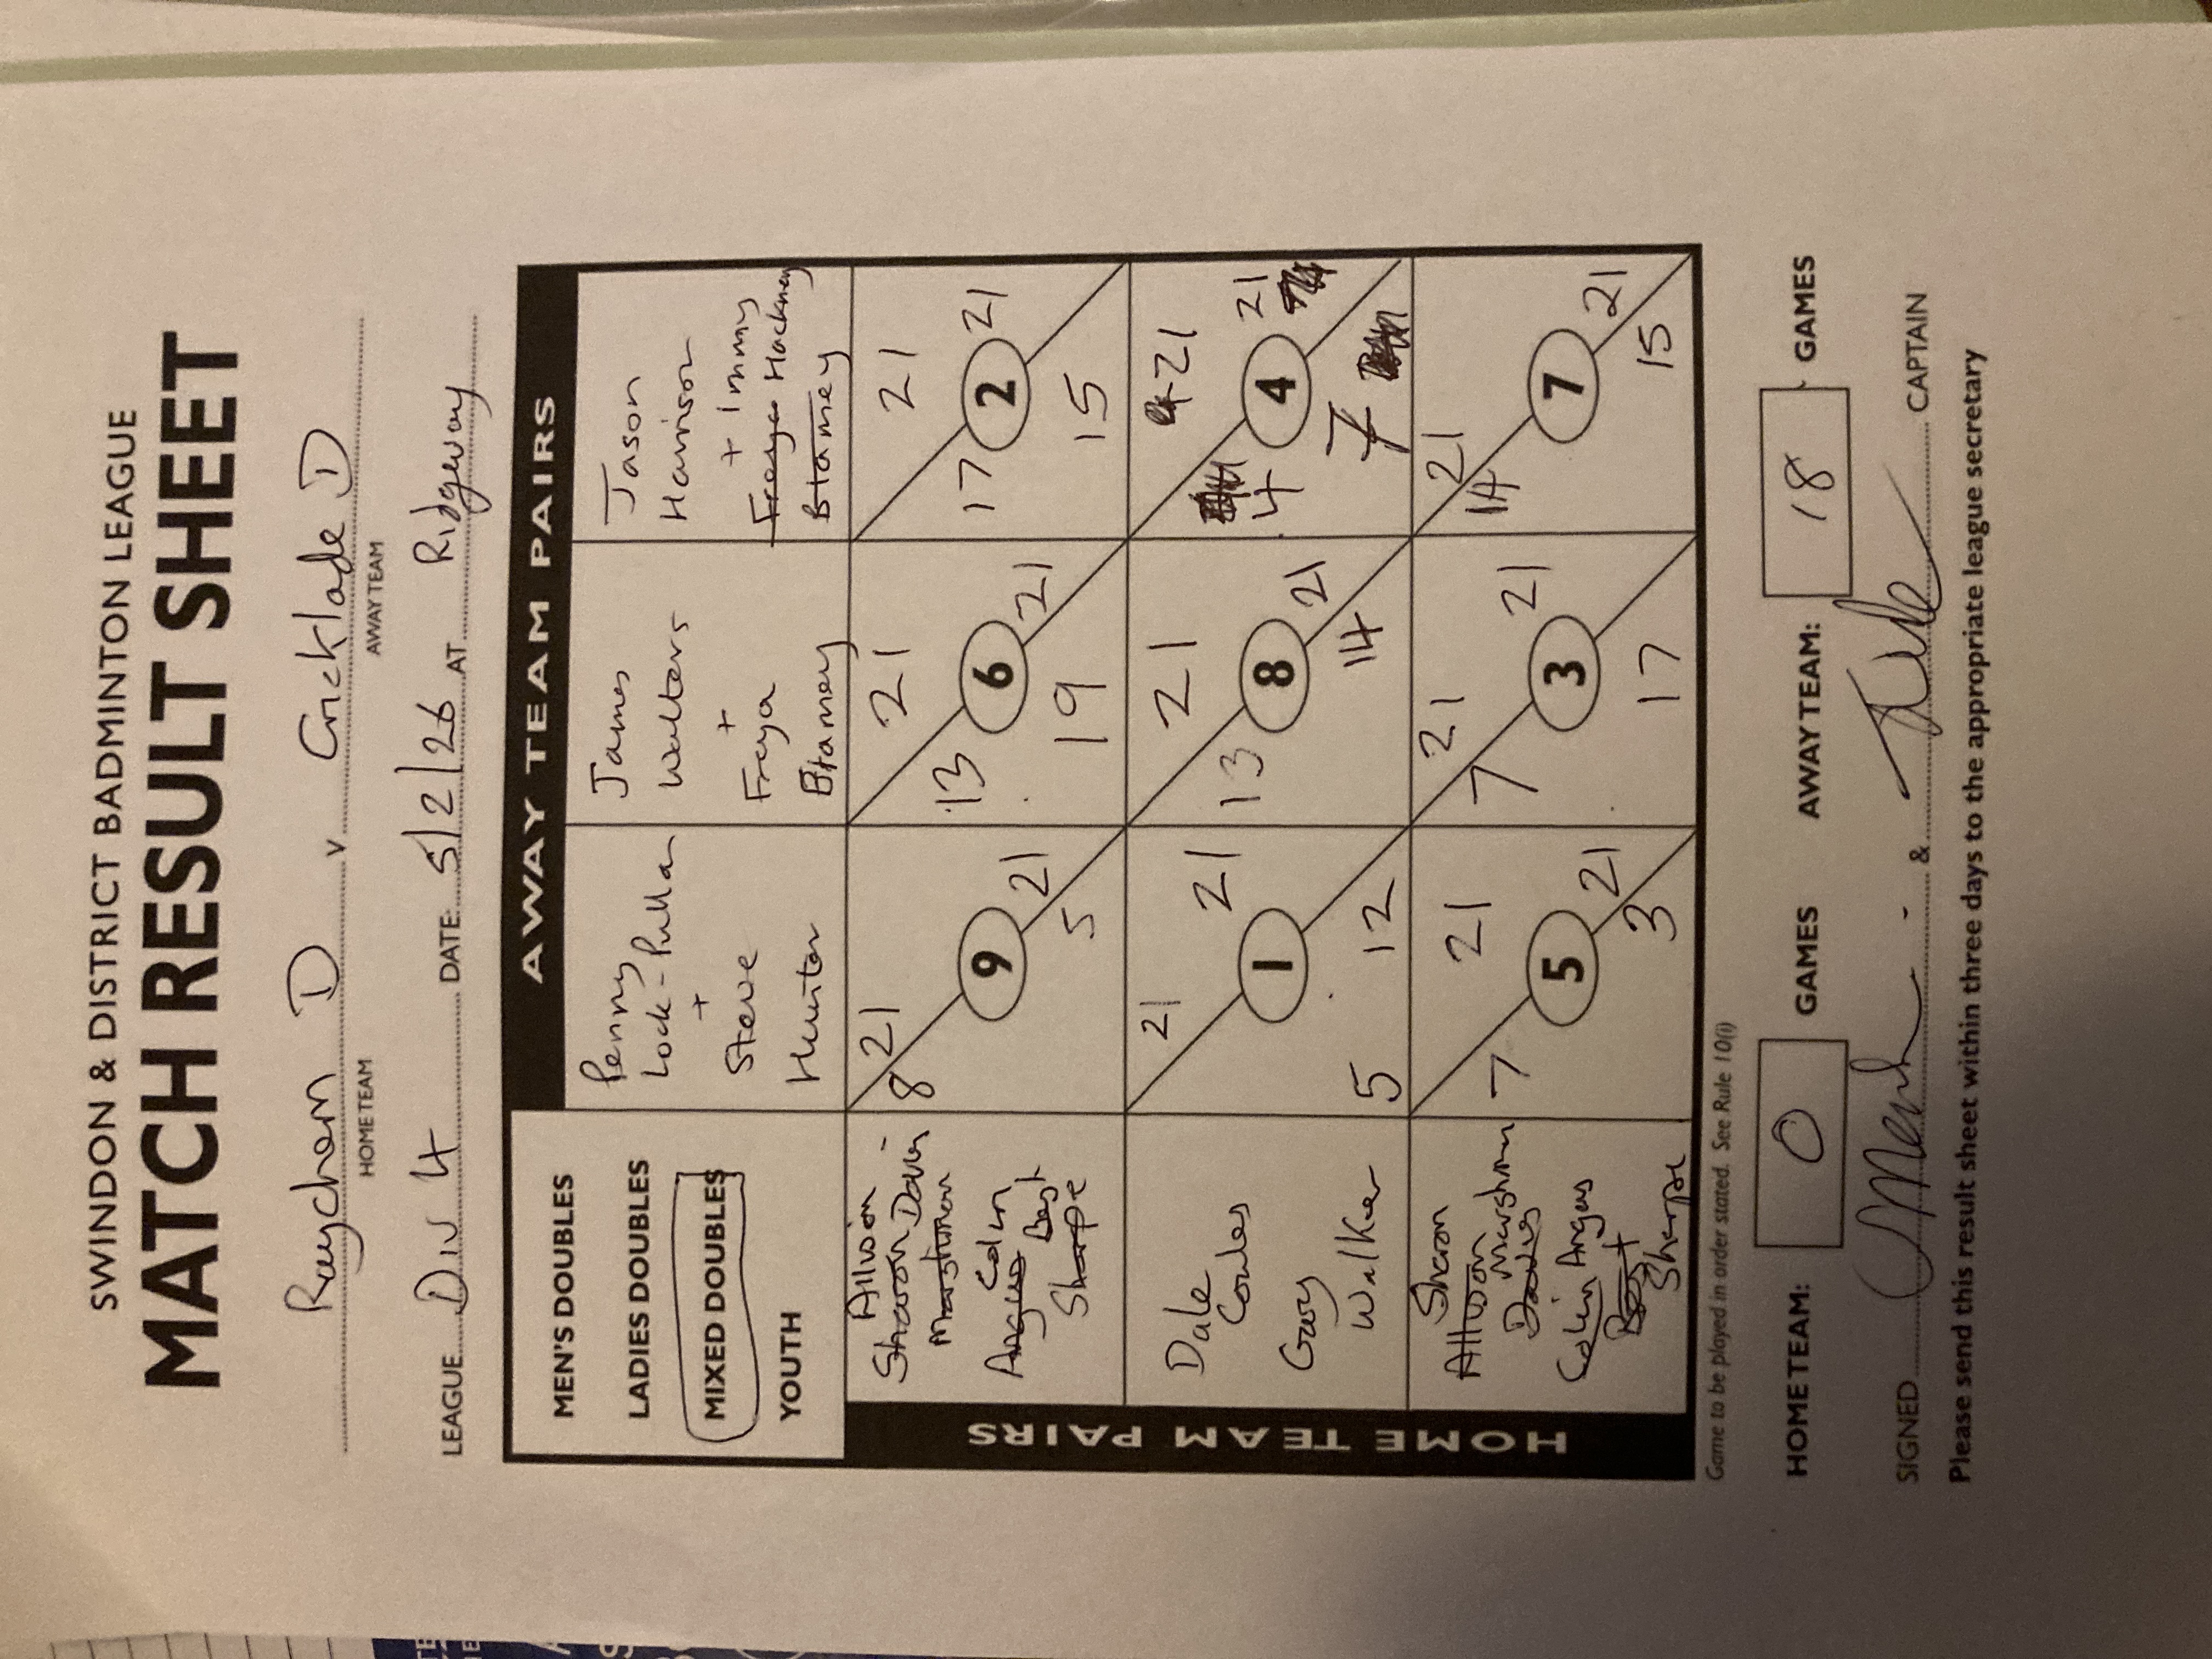 SWINDON & DISTRICT BADMINTON LEAGUE
MATCH RESULT SHEET
Raychem D v Cricklade D
HOME TEAM AWAY TEAM
LEAGUE Div 4 DATE 5/2/26 AT Ridgeway
AWAY TEAM PAIRS
MEN'S DOUBLES
LADIES DOUBLES
MIXED DOUBLES
YOUTH
Penny
Lock-Pullan
+
Steve
Hunter
James
Walters
+
Freya
Blamey
Jason
Harrison
+ Immy
Freya Hackney
Blamey
HOME TEAM PAIRS
Allison
Sharon Davies
Marshman
Colin
Angus Best
Sharpe
8 21
9 21
5
21
13 6 21
19
21
17 2 21
15
Dale
Cowles
Gary
Walker
21 21
1
5 12
21
13 8 21
14
21
4 4 21
7
Sharon
Allison Marshman
Davies
Colin Angus
Best
Sharpe
21
7 5 21
3
21
7 3 21
17
21
14 7 21
15
Game to be played in order stated. See Rule 10(i)
HOME TEAM: 0 GAMES AWAY TEAM: 18 GAMES
SIGNED & CAPTAIN
Please send this result sheet within three days to the appropriate league secretary